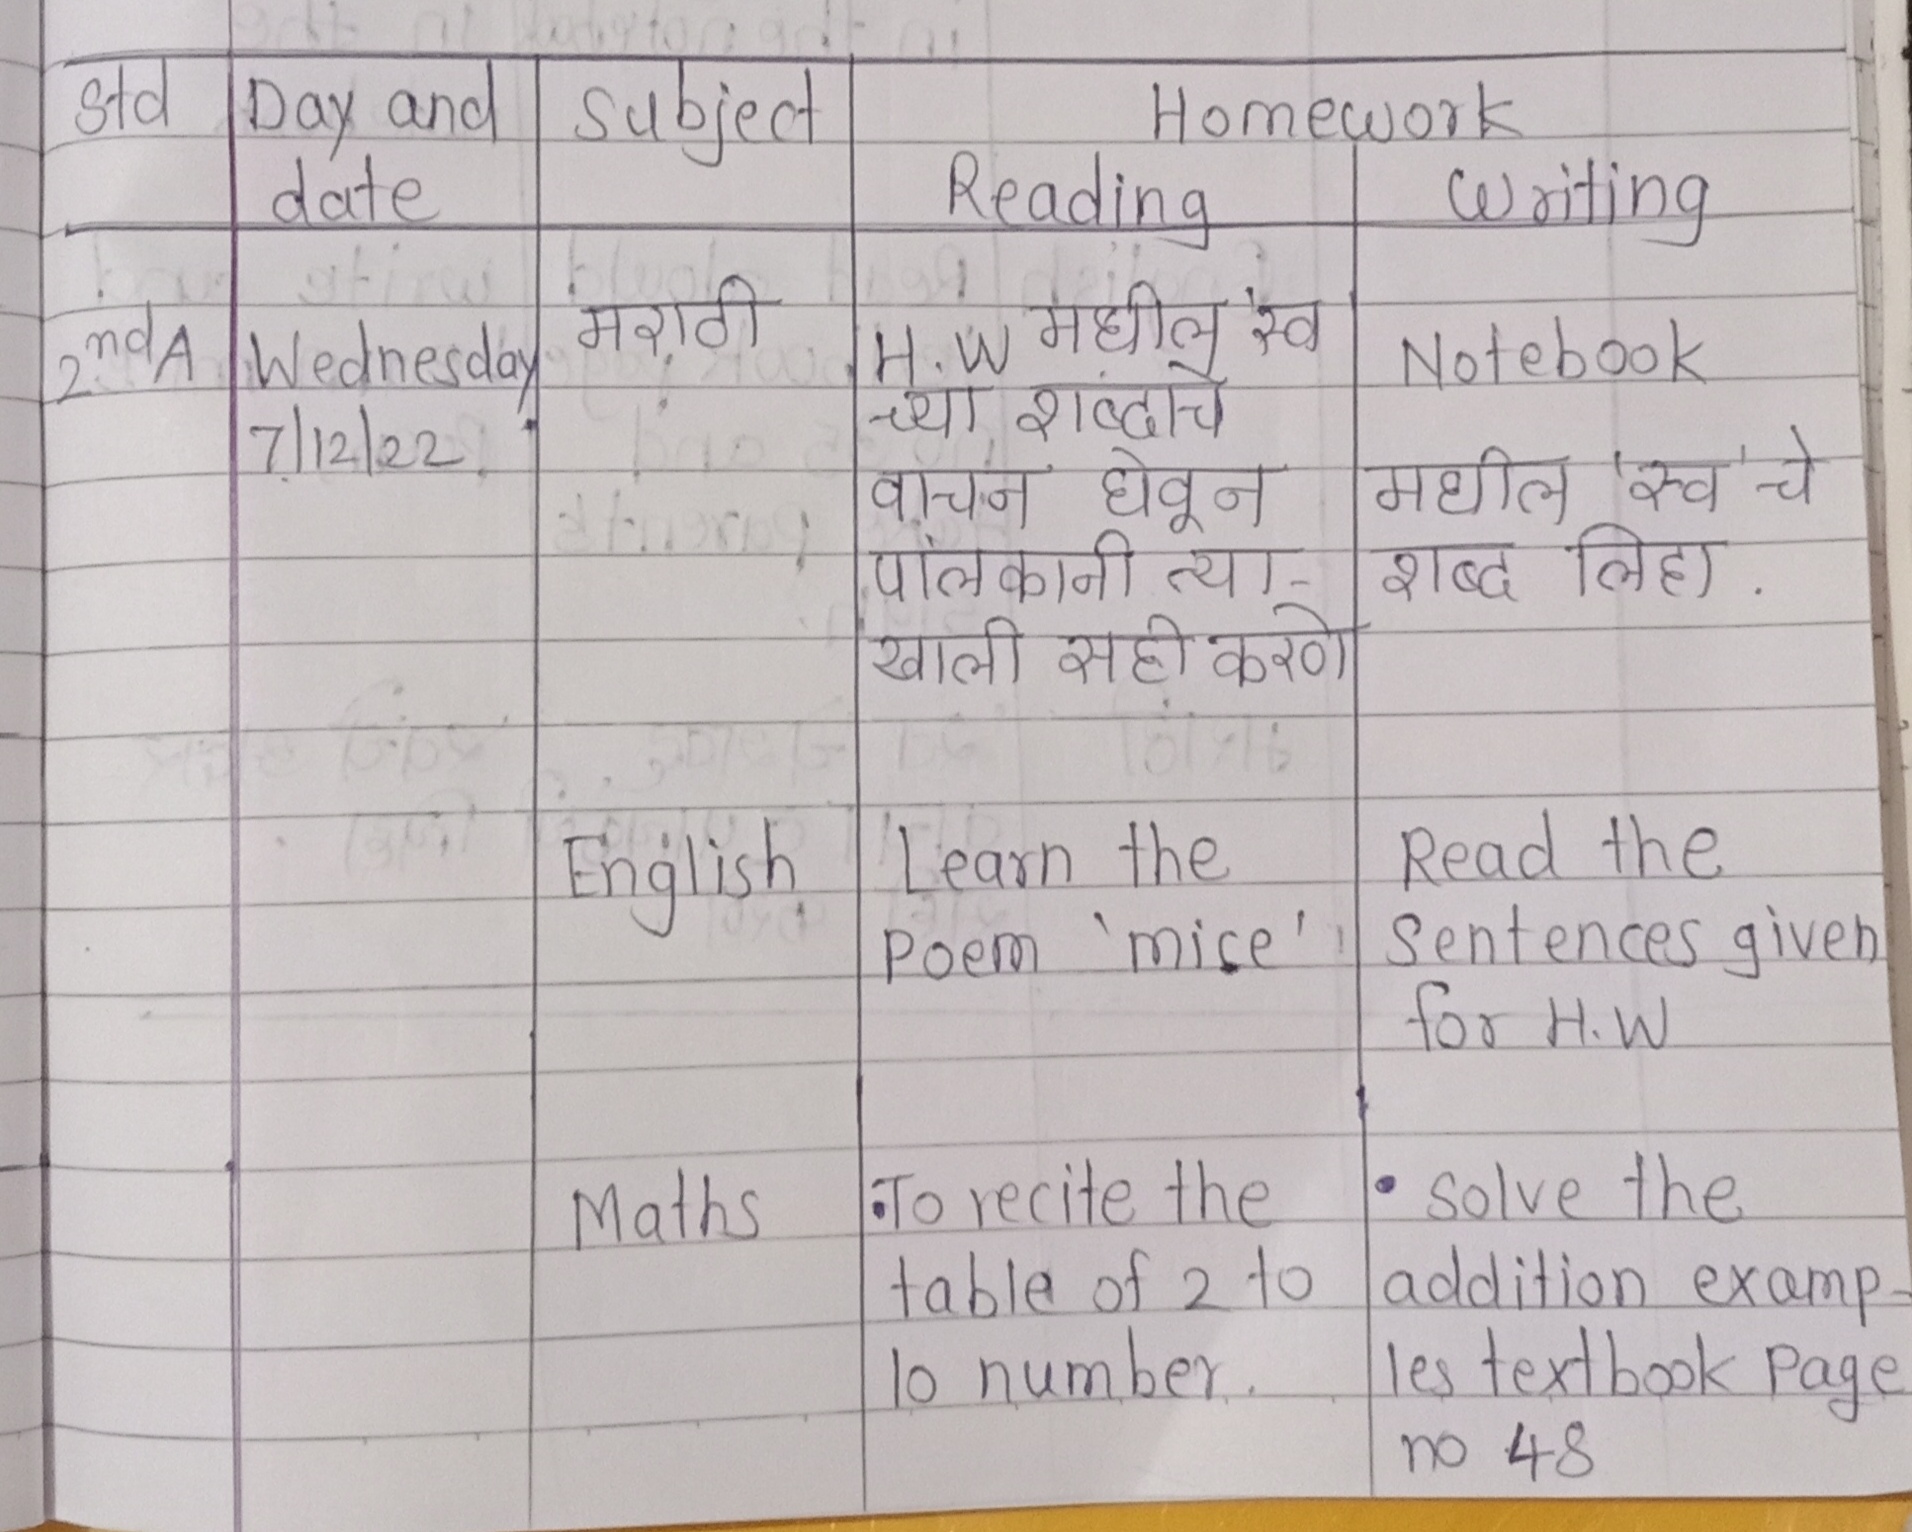 Std Day and Subject Homework
date Reading Writing
2nd A Wednesday मराठी H.W मधील 'स्व Notebook
7/12/22 च्या शब्दांचे
वाचन घेवून मधील 'स्व' चे
पालकांनी त्या- शब्द लिहा.
खाली सही करणे
English Learn the Read the
Poem 'mice' Sentences given
for H.W
Maths • To recite the • solve the
table of 2 to addition examp-
10 number. les textbook Page
no 48